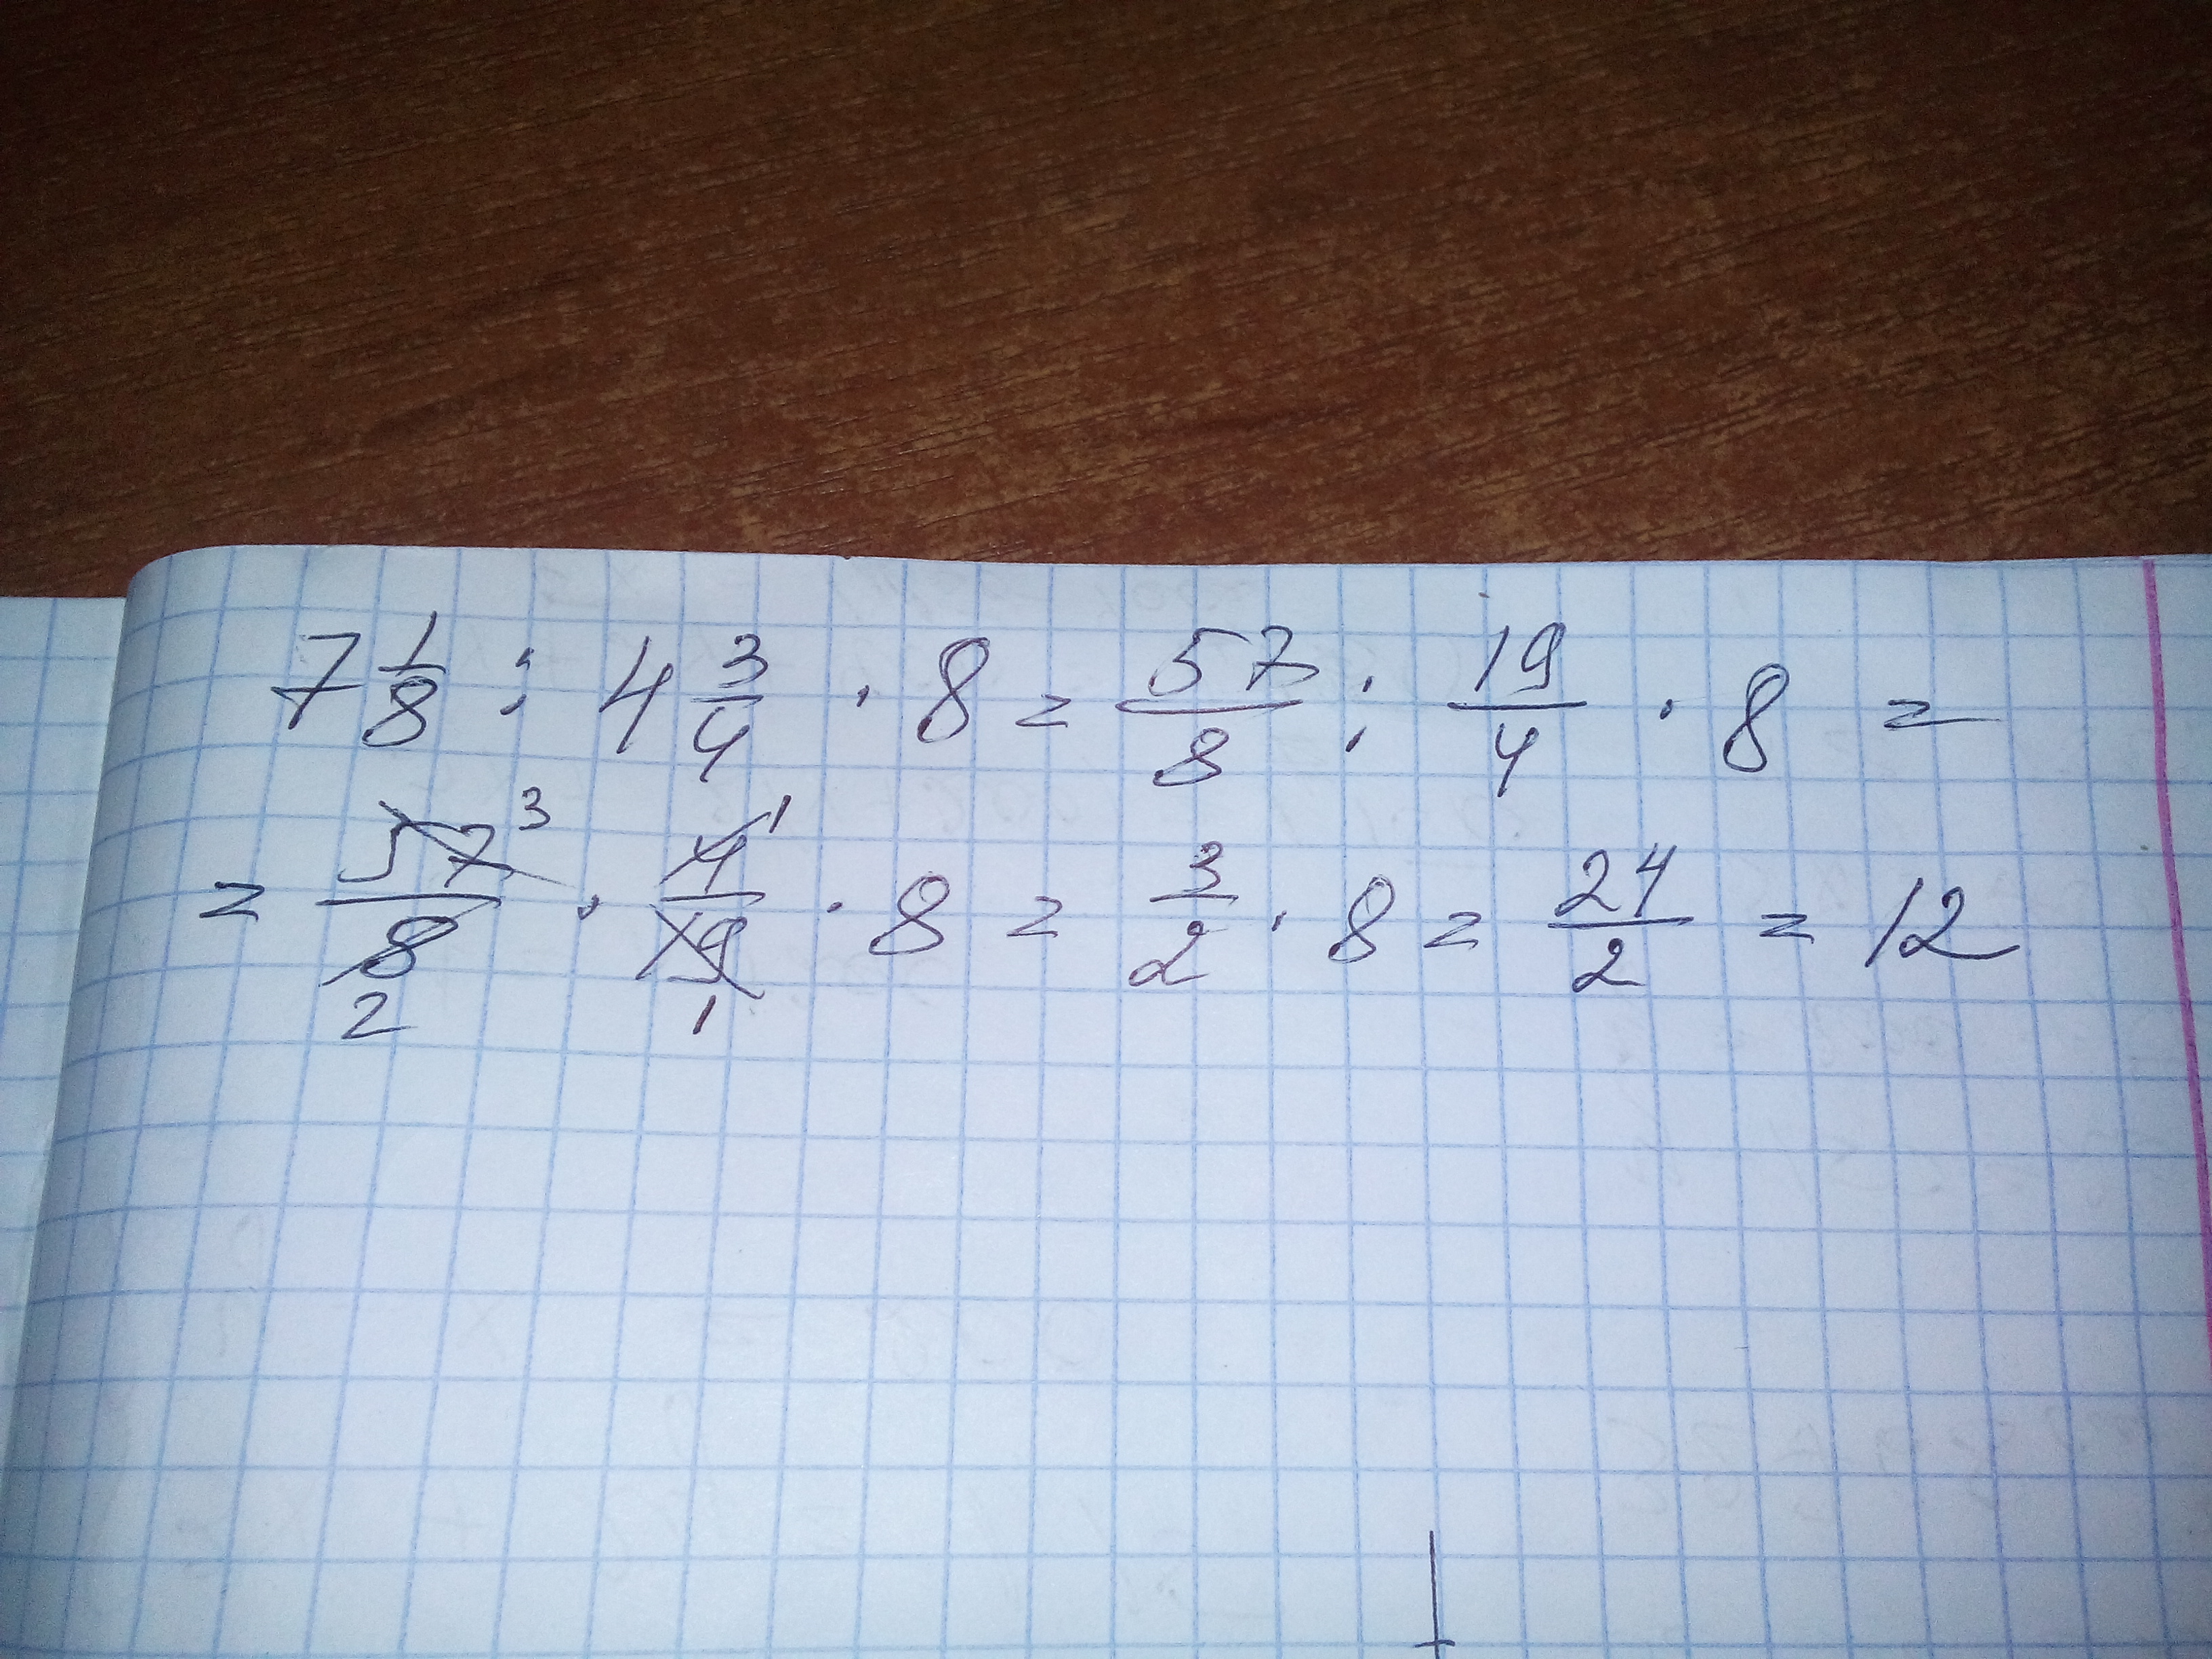 7 1/8 : 4 3/4 · 8 = 57/8 : 19/4 · 8 =
= 57 3/8 2 · 4 1/19 1 · 8 = 3/2 · 8 = 24/2 = 12